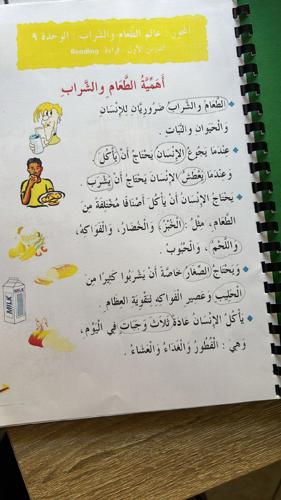 المحور : عالم الطعام والشراب : الوحدة ٩
الدرس الأول - قراءة Reading
أَهَمِّيَّةُ الطَّعَامِ والشَّرابِ
الطَّعَامُ والشَّرَابُ ضَرُورِيَّانِ لِلإِنْسَانِ
وَالْحَيَوانِ وَالنَّبَاتِ .
عِنْدَمَا يَجُوعُ الإِنْسَانُ يَحْتَاجُ أَنْ يَأْكُلَ
وَعِنْدَمَا يَعْطَشُ الإِنْسَانُ يَحْتَاجُ أَنْ يَشْرَبَ .
يَحْتَاجُ الإِنْسَانُ أَنْ يَأْكُلَ أَصْنَافًا مُخْتَلِفَةً مِنَ
الطَّعَامِ، مِثْلُ : الْخُبْزُ، وَالْخُضَارُ، وَالْفَوَاكِهُ،
وَاللَّحْمُ ، وَالْحُبُوبُ .
وَيَحْتَاجُ الصِّغَارُ خَاصَّةً أَنْ يَشْرَبُوا كَثِيرًا مِنَ
الْحَلِيبِ وَعَصِيرِ الْفَوَاكِهِ لِتَقْوِيَةِ الْعِظَامِ .
يَأْكُلُ الإِنْسَانُ عَادَةً ثَلَاثَ وَجَبَاتٍ فِي الْيَوْمِ ،
وَهِيَ : الْفُطُورُ وَالْغَدَاءُ وَالْعَشَاءُ .
MILK
MILK